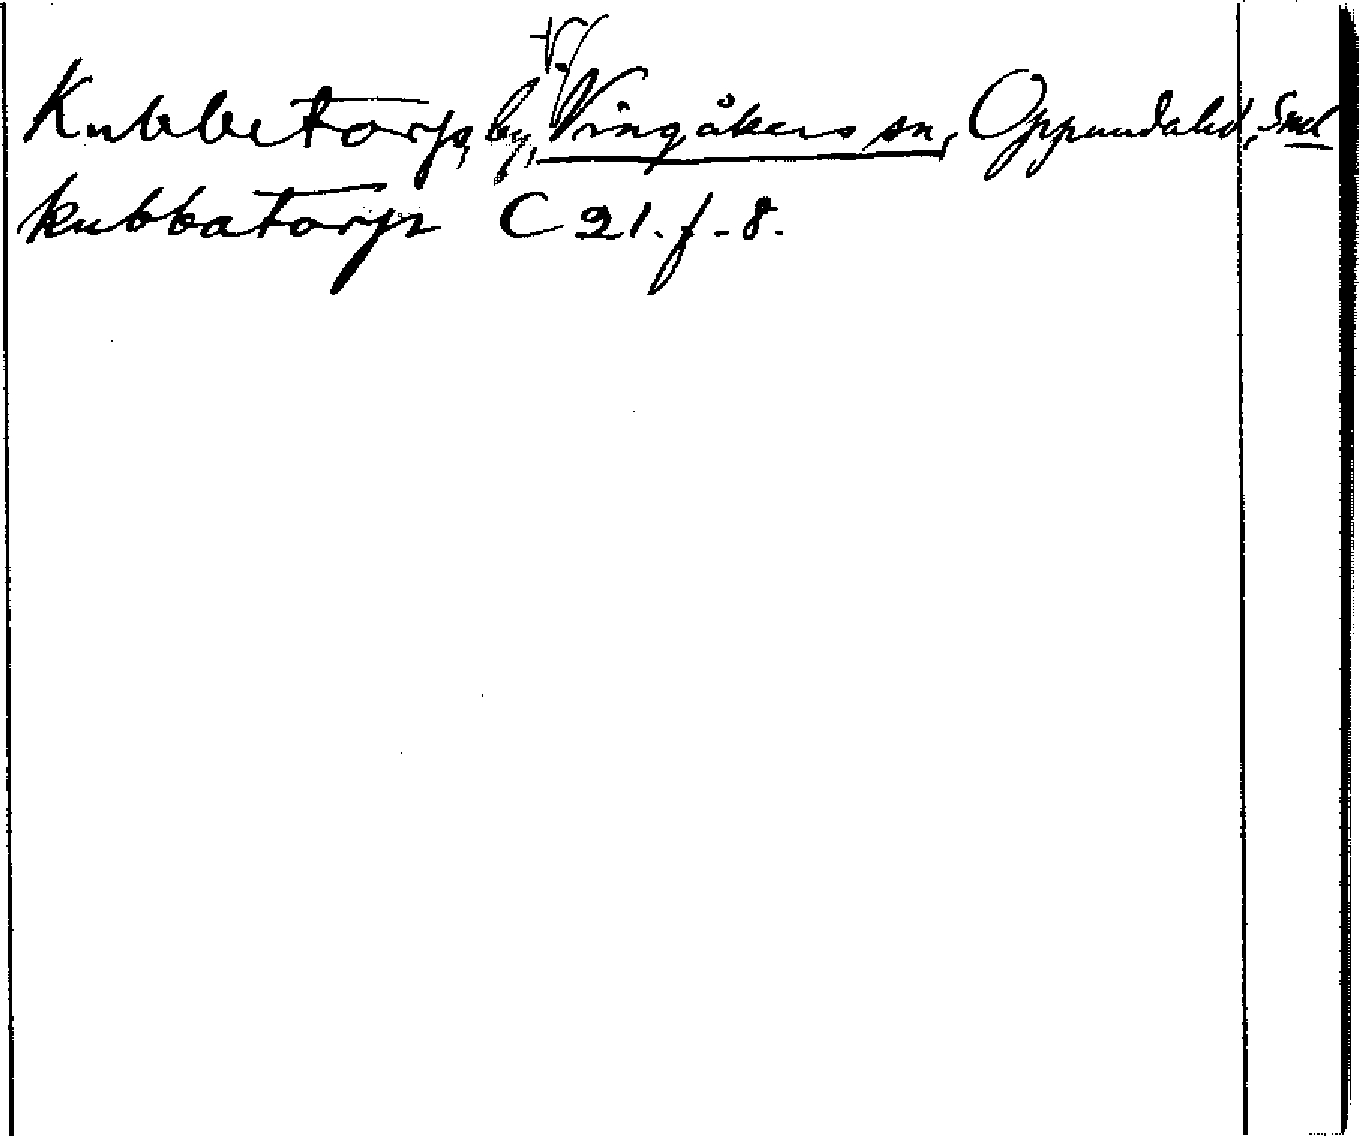 V.
Kubbetorp, by, Vingåkers sn, Oppunda hd, Sml
Kubbatorp C 21. f. 8.